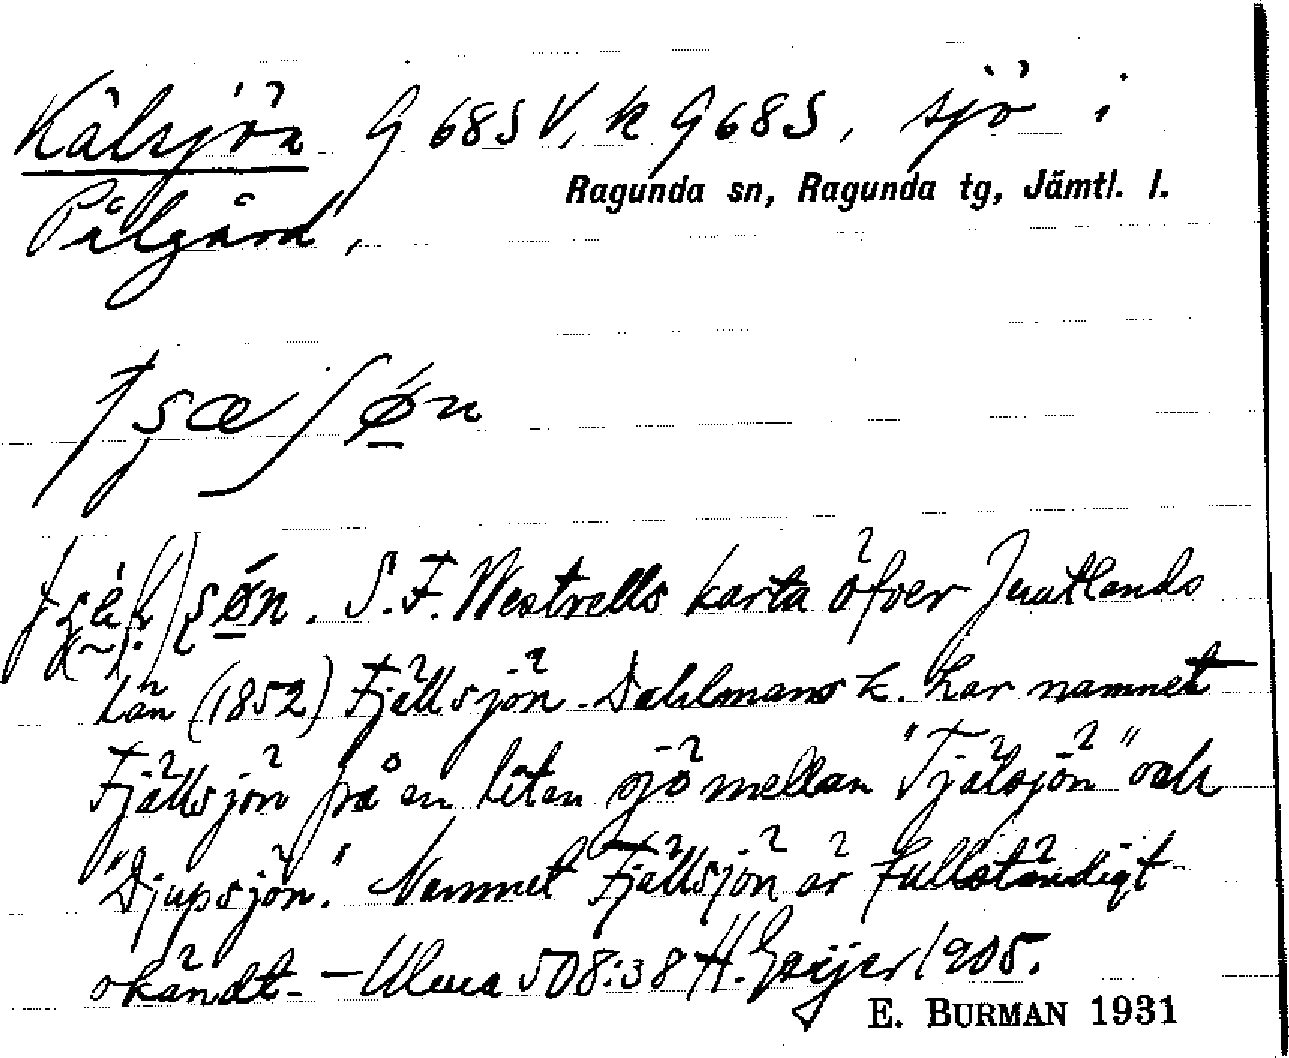 Kälsjön G 68 S V, k G 68 S, sjö i
Ragunda sn, Ragunda tg, Jämtl. l.
Pålgård,
S. F. Westrells karta öfver Jemtlands
län (1852) Fjällsjön. Dahlmans k. har namnet
Fjällsjön på en liten sjö mellan "Tjälsjön" och
"Djupsjön". Namnet Fjällsjön är fullständigt
okändt. – Ulma 508:38 H. Geijer 1905.
E. BURMAN 1931